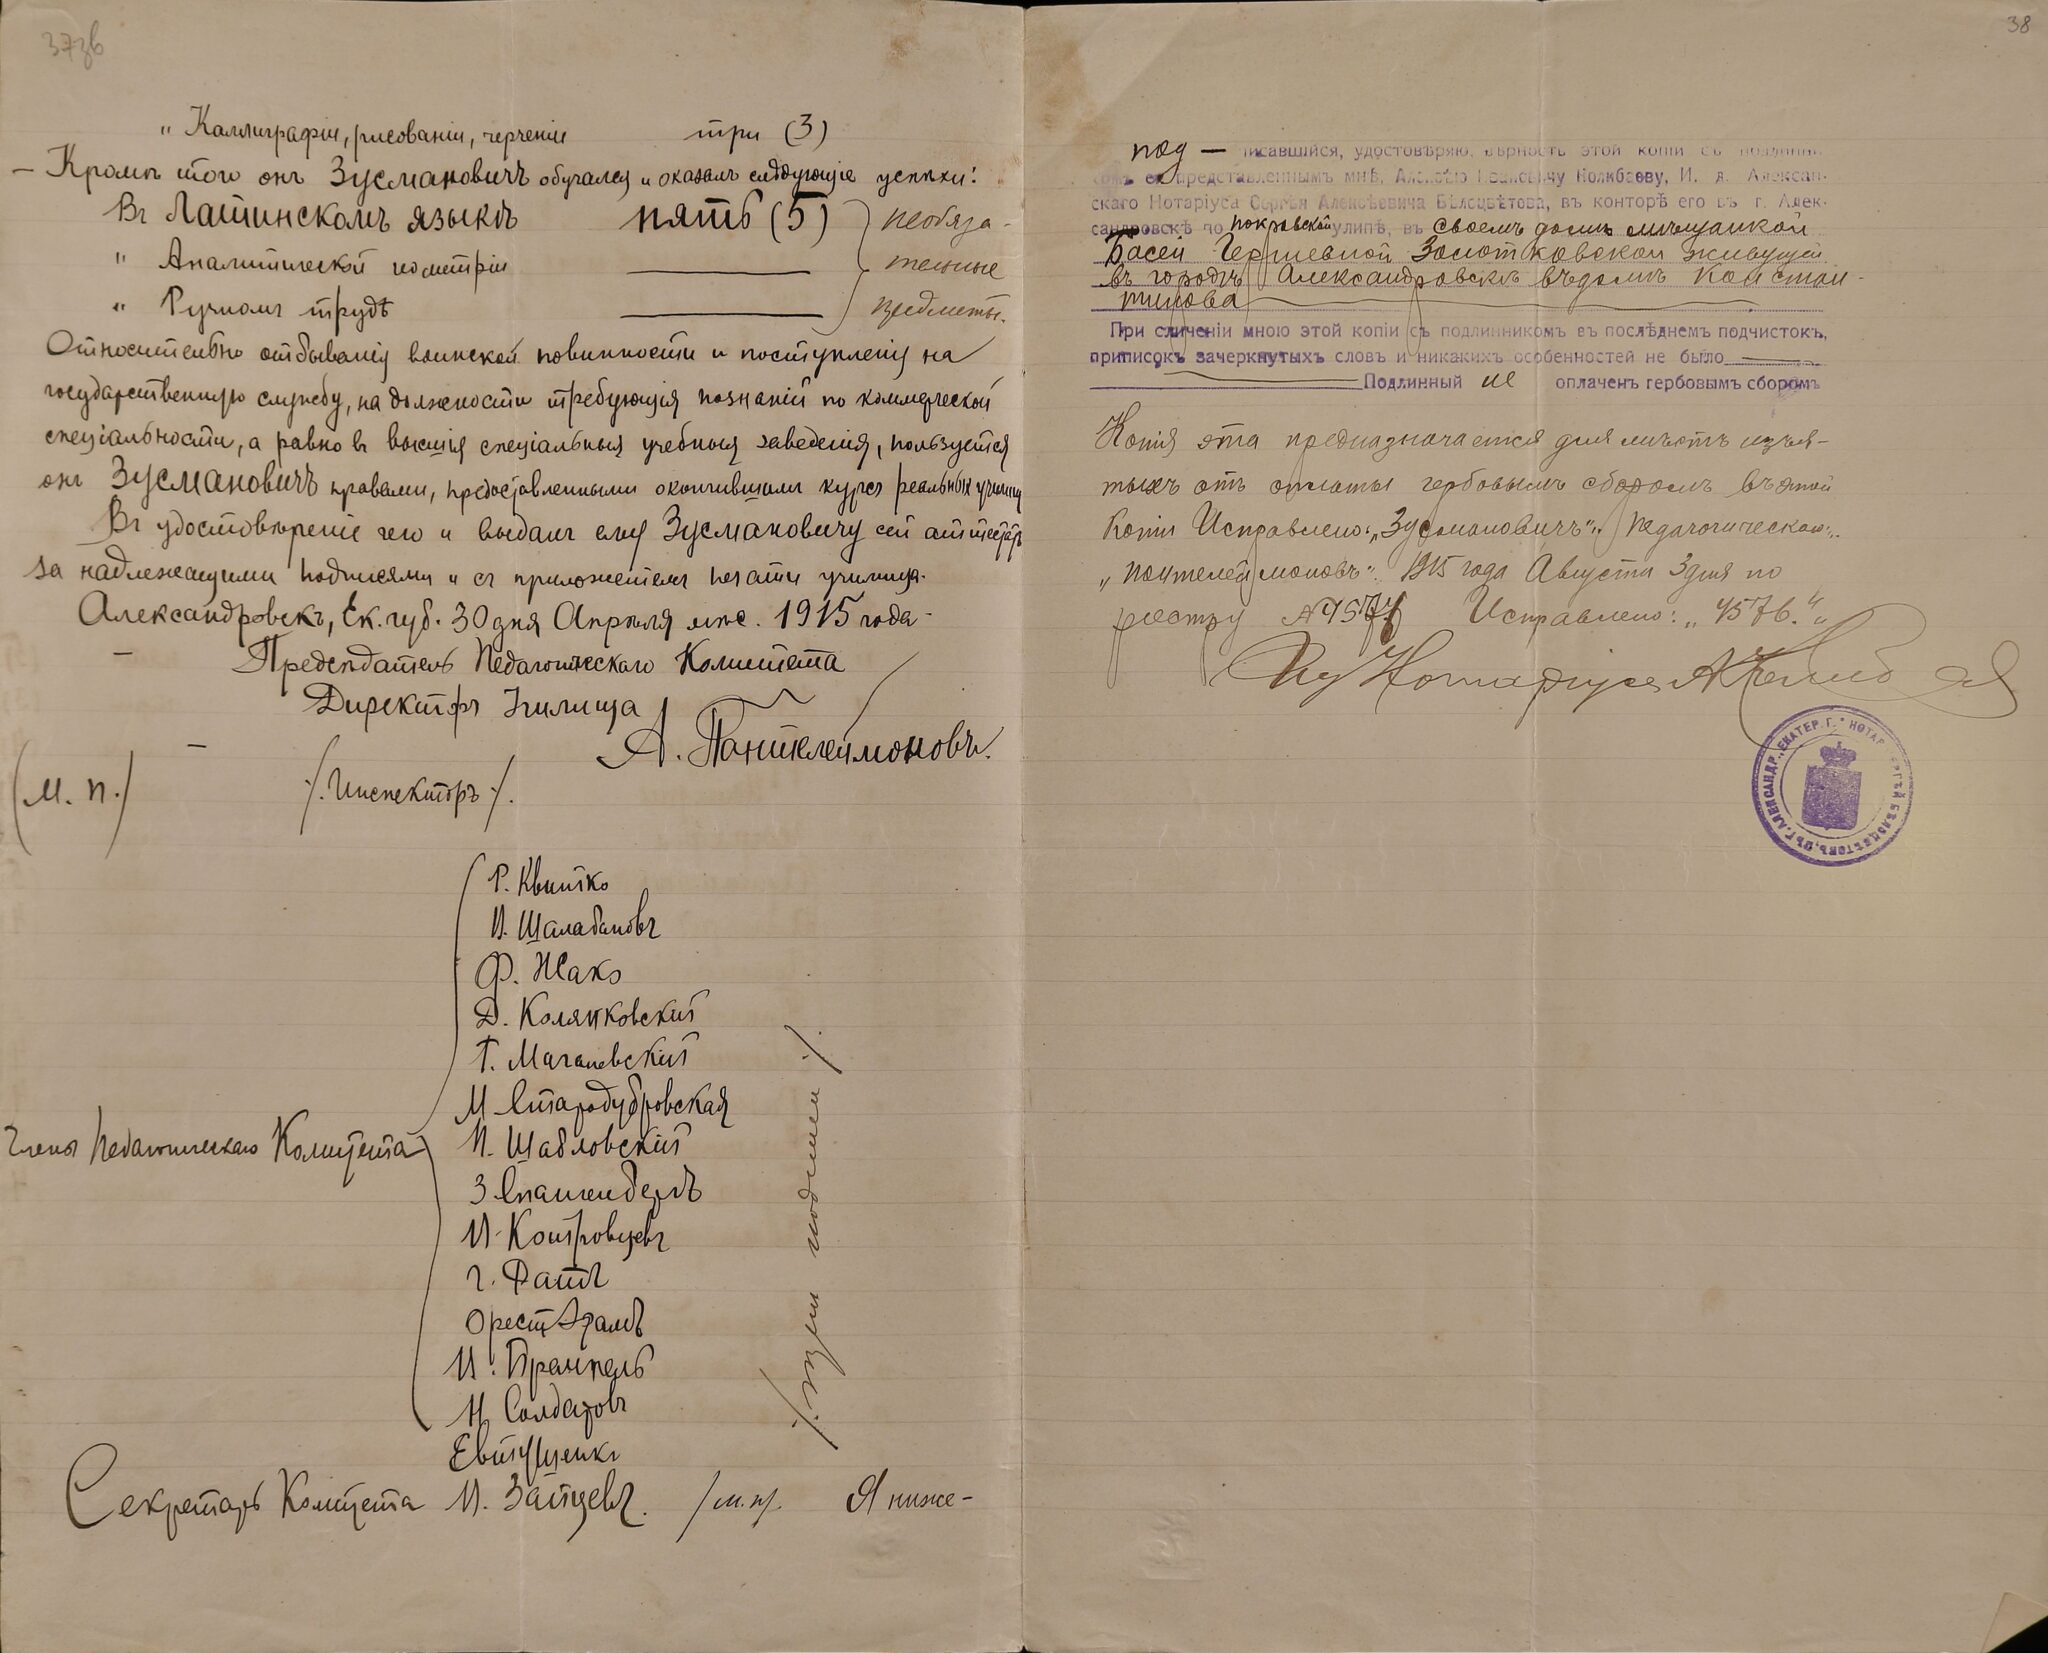 37зв
„ Каллиграфіи, рисованіи, черченіи три (3)
— Кромѣ того онъ Зусмановичъ обучался и оказалъ слѣдующіе успѣхи:
Въ Латинскомъ языкѣ пять (5) необяза-
„ Аналитической геометріи ——— тельные
„ Ручномъ трудѣ ——— предметы.
Относительно отбыванія воинской повинности и поступленія на
государственную службу, на должности требующія познаній по коммерческой
спеціальности, а равно въ высшія спеціальныя учебныя заведенія, пользуется
онъ Зусмановичъ правами, предоставленными окончившимъ курсъ реальныхъ училищ
Въ удостовѣреніе чего и выданъ ему Зусмановичу сей аттестатъ
за надлежащими подписями и съ приложеніемъ печати училища.
Александровскъ, Ек. губ. 30 дня Апрѣля мѣс. 1915 года.
Предсѣдатель Педагогическаго Комитета
Директоръ Училища
А. Пантелеймоновъ.
(М. П.) /. Инспекторъ /.
Р. Квитко
И. Шалабановъ
Ф. Жако
Д. Колянковскій
Т. Магалевскій
М Стародубровская
Члены Педагогическаго Комитета П. Шабловскій
З Спангенбергъ
И.
Г. Фатъ
Орестъ Адамъ
И. Вранкель
Н. Солдатовъ
Евтушенко
Секретарь Комитета И. Зайцевъ. /м. п/. Я ниже-
38
под— писавшійся, удостовѣряю, вѣрность этой копіи съ подлинни-
комъ ея представленнымъ мнѣ, Алексѣю Ивановичу Колибаеву, И. д. Алексан-
скаго Нотаріуса Сергѣя Алексѣевича Бѣлоцвѣтова, въ конторѣ его въ г. Алек-
сандровскѣ по Покровской улицѣ, въ своемъ домѣ мѣщанкой
Басей Гершевной Золотковской живущей
въ городѣ Александровскѣ въ домѣ Констан-
тинова
При сличеніи мною этой копіи съ подлинникомъ въ послѣднемъ подчистокъ,
приписокъ зачеркнутыхъ словъ и никакихъ особенностей не было
Подлинный не оплаченъ гербовымъ сборомъ
Копія эта предназначается для мѣстъ изъя-
тыхъ отъ оплаты гербовымъ сборомъ въ этой
копіи Исправлено: „Зусмановичъ“. „Педагогическаго“.
„Пантелеймоновъ“. 1915 года Августа 3 дня по
реестру № 4576 Исправлено: „4576.“
И д Нотаріуса А Колибаев